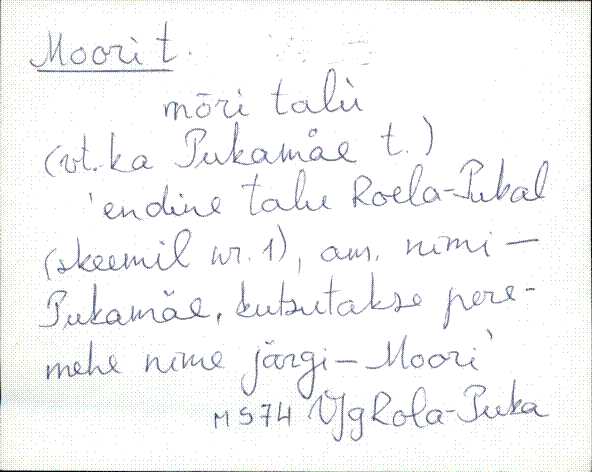 Moori t.
mōri talù
(vt. ka Pukamäe t.)
'endine talu Roela-Pukal
(skeemil nr. 1), am. nimi —
Pukamäe, kutsutakse pere-
mehe nime järgi — Moori'
MS74 VJg Rola-Puka